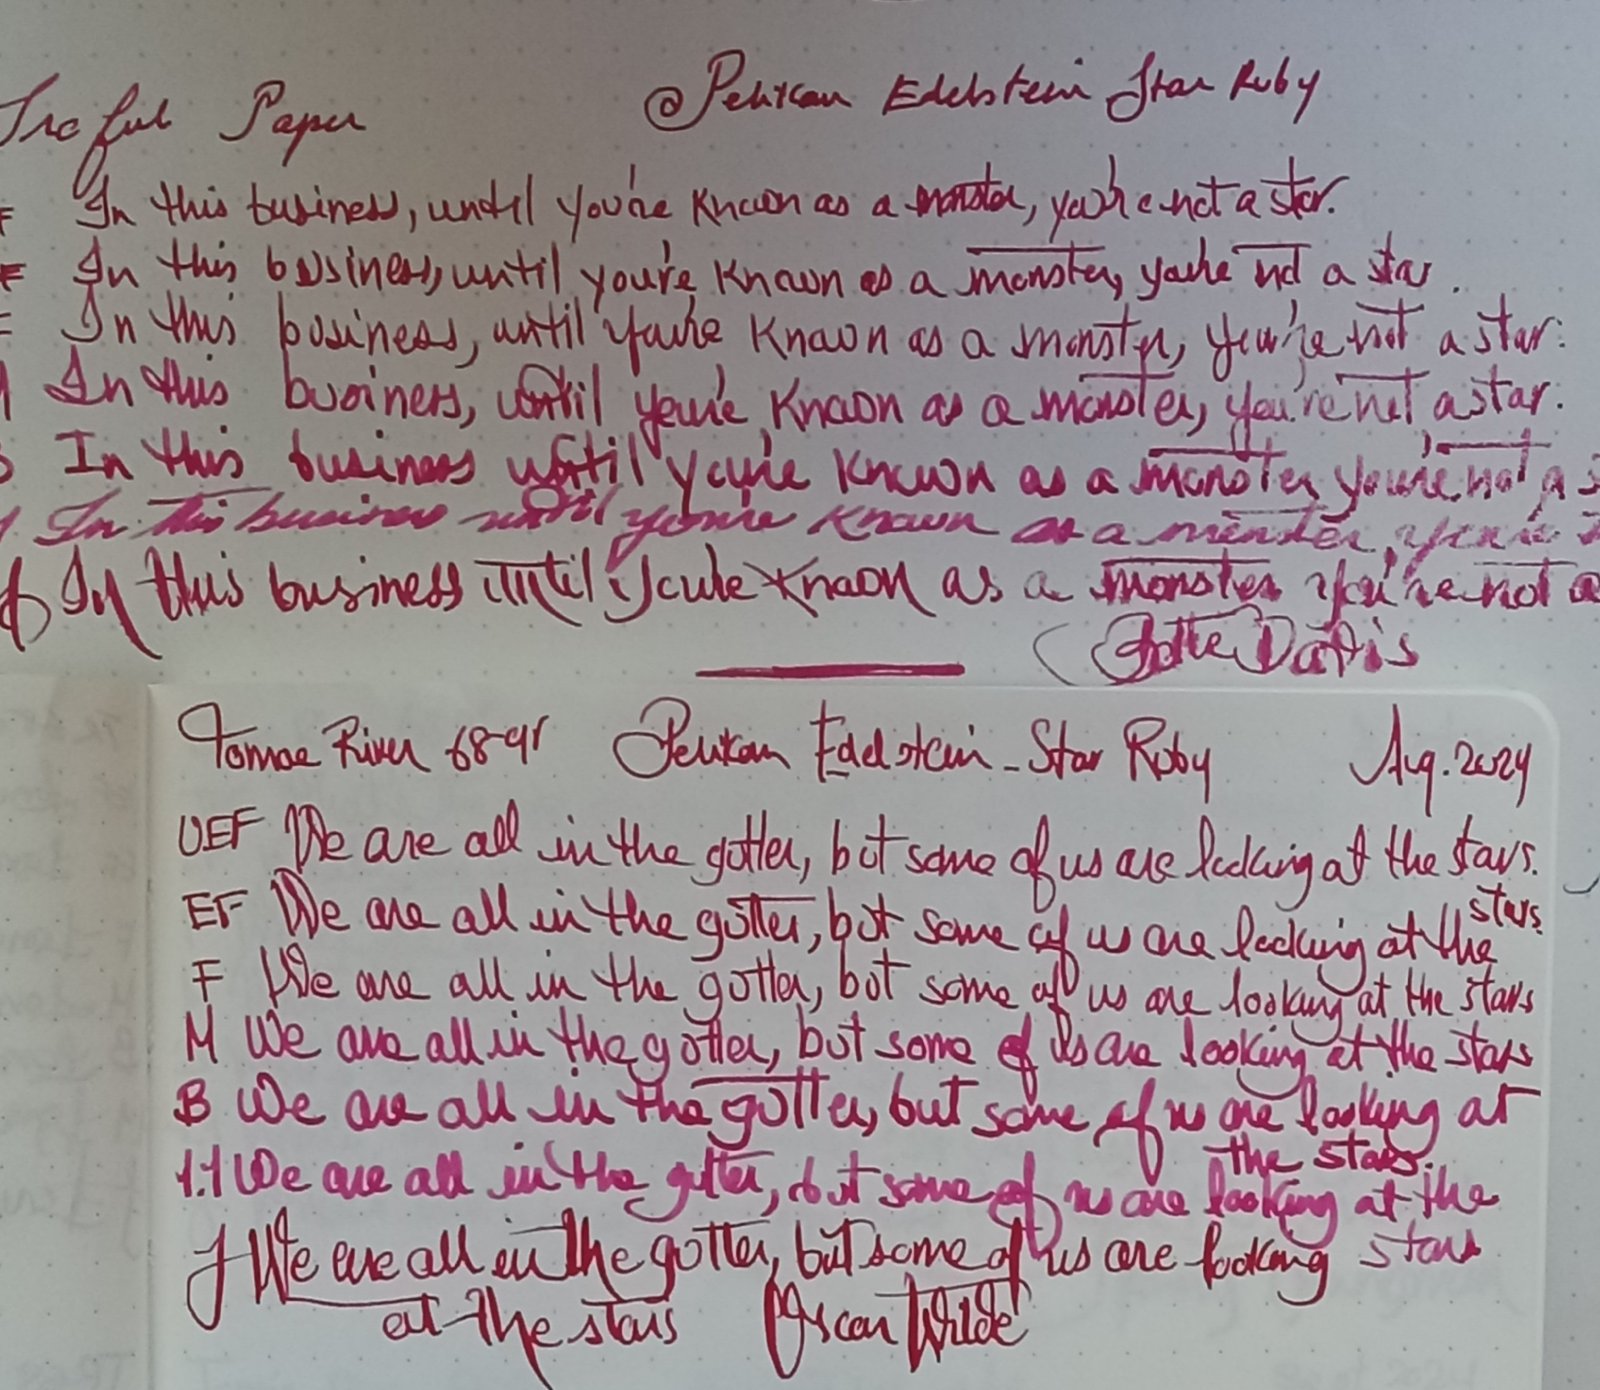 Paper @Pelikan Edelstein Star Ruby
F In this business, until you're known as a monster, you're not a star.
EF In this business, until you're known as a monster, you're not a star.
F In this business, until you're known as a monster, you're not a star.
M In this business, until you're known as a monster, you're not a star.
B In this business until you're known as a monster you're not a
In this business until you're known as a monster, you're
f In this business until you're known as a monster you're not a
(Bette Davis
Tomoe River 68gr Pelikan Edelstein - Star Ruby Aug. 2024
UEF We are all in the gutter, but some of us are looking at the stars.
EF We are all in the gutter, but some of us are looking at the stars.
F We are all in the gutter, but some of us are looking at the stars
M We are all in the gutter, but some of us are looking at the stars
B We are all in the gutter, but some of us are looking at
the stars.
1.1 We are all in the gutter, but some of us are looking at the
stars
f We are all in the gutter, but some of us are looking
at the stars Oscar Wilde